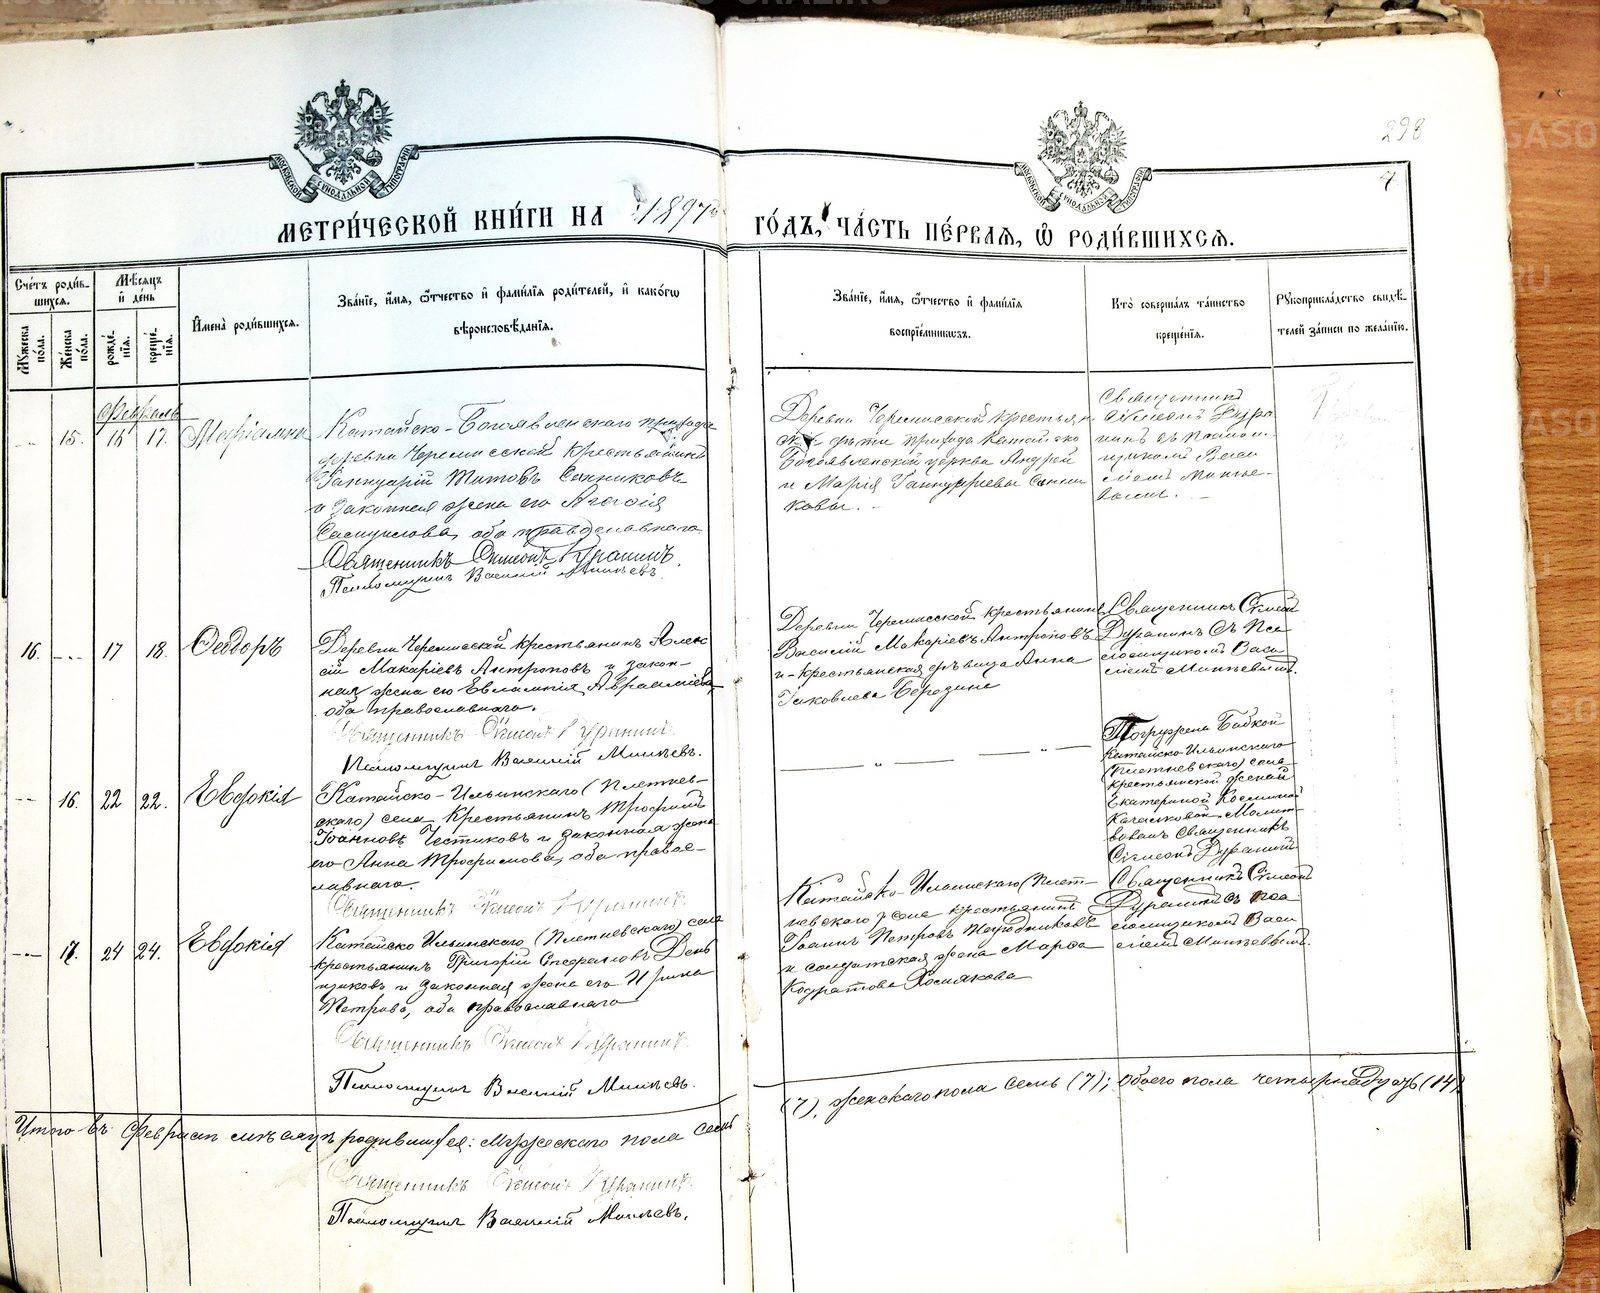 298
7
МОСКОВСКОЙ СѴНОДАЛЬНОЙ ТИПОГРАФІИ
МОСКОВСКОЙ СѴНОДАЛЬНОЙ ТИПОГРАФІИ
МЕТРИ́ЧЕСКОЙ КНИ́ГИ НА 1897й ГО́ДЪ, ЧА́СТЬ ПЕ́РВАЯ, Ѽ РОДИ́ВШИХСЯ.
Сче́тъ роди́в-
шихся.
Мѣ́сяцъ
и҆ де́нь
Мꙋ́жеска по́ла.
Же́нска по́ла.
рожде́-
нїя.
креще́-
нїя.
И҆мена̀ роди́вшихся.
Зва́нїе, и҆́мя, ѻ҆́тчество и҆ фами́лїя роди́телей, и҆ како́гѡ
вѣроисповѣ́данїя.
Зва́нїе, и҆́мя, ѻ҆́тчество и҆ фами́лїя
воспрїе́мникѡвъ.
Кто̀ соверша́лъ та́инство
креще́нїя.
Рꙋкоприкла́дство свидѣ́-
телей за́писи по жела́нїю.
Февраль
15. 16 17.
Катайско-Богоявленскаго прихода
деревни Черемисской крестьянинъ
Іаннуарій Титовъ Санниковъ
и законная жена его
оба православнаго
Священникъ Симеонъ Дурагинъ.
Псаломщикъ Василій
Деревни Черемисской крестьян
дѣти прихода Катайско
Богоявленской церкви Андрей
и Марія Іаннуаріевы Санни
ковы.
Священникъ
Симеонъ Дура
гинъ съ псалом-
щикомъ Васи
ліемъ
16. 17 18. Ѳеодоръ
Деревни Черемисской крестьянинъ Алек
сій Макаріевъ Антроповъ и закон-
ная жена его Евлампія Аврааміева
оба православнаго.
Священникъ Симеонъ Дурагинъ.
Псаломщикъ Василій
Деревни Черемисской крестьянинъ
Василій Макаріевъ Антроповъ
и крестьянская дѣвица Анна
Іаковлева Березина
Священникъ Симеон
Дурагинъ съ пса
ломщикомъ Васи
ліемъ
16. 22 22. Евдокія
Катайско-Ильинскаго (Плетнев-
скаго) села крестьянинъ Трофимъ
Іоанновъ и законная жена
его Анна Трофимова, оба правос-
лавнаго.
Священникъ Симеонъ Дурагинъ
Погружена бабкой
Катайско-Ильинскаго
(Плетневскаго) села
крестьянской женой
Екатериной Косминой
Молит-
вовалъ Священникъ
Симеонъ Дурагинъ
17. 24 24. Евдокія
Катайско Ильинскаго (Плетневскаго) села
крестьянинъ Григорій Стефановъ День
щиковъ и законная жена его Ирина
Петрова, оба православнаго
Священникъ Симеонъ Дурагинъ.
Псаломщикъ Василій
Катайско-Ильинскаго (Плет-
невскаго) села крестьянинъ
Іоаннъ Петровъ
и солдатская жена Марѳа
Кодратова Хомякова
Священникъ Симеон
Дурагинъ съ пса
ломщикомъ Васи
ліемъ
Итого въ Февралѣ мѣсяцѣ родившихся: мужескаго пола семь
(7), женскаго пола семь (7); обоего пола четырнадцать (14)
Священникъ Симеонъ Дурагинъ
Псаломщикъ Василій